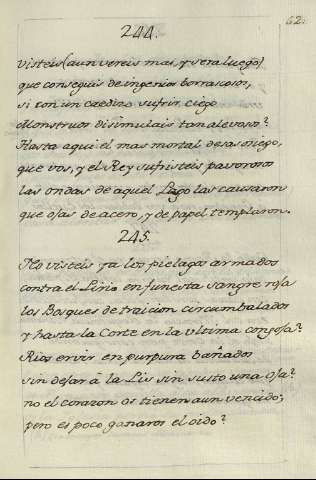 62.
244.
visteis (aun vereis mas, y sera luego)
que conseguis de ingenios borrascosos,
si con un credino sufrir ciego
Monstruos disimulais tan alevosos?
Hasta aqui el mas mortal desasosiego,
que vos, y el Rey sufristeis pavorosos
las ondas de aquel Lago las causaron
que ojas de acero, y de papel templaron.
245.
No visteis ya los pielagos armados
contra el Lirio en funesta sangre roja
los Bosques de traicion circumbalados
y hasta la Corte en la ultima congoja?
Rios ervir en purpura bañados
sin dejar â la Lis sin susto una oja?
no el corazon os tienen aun vencido;
pero es poco ganaros el oido?